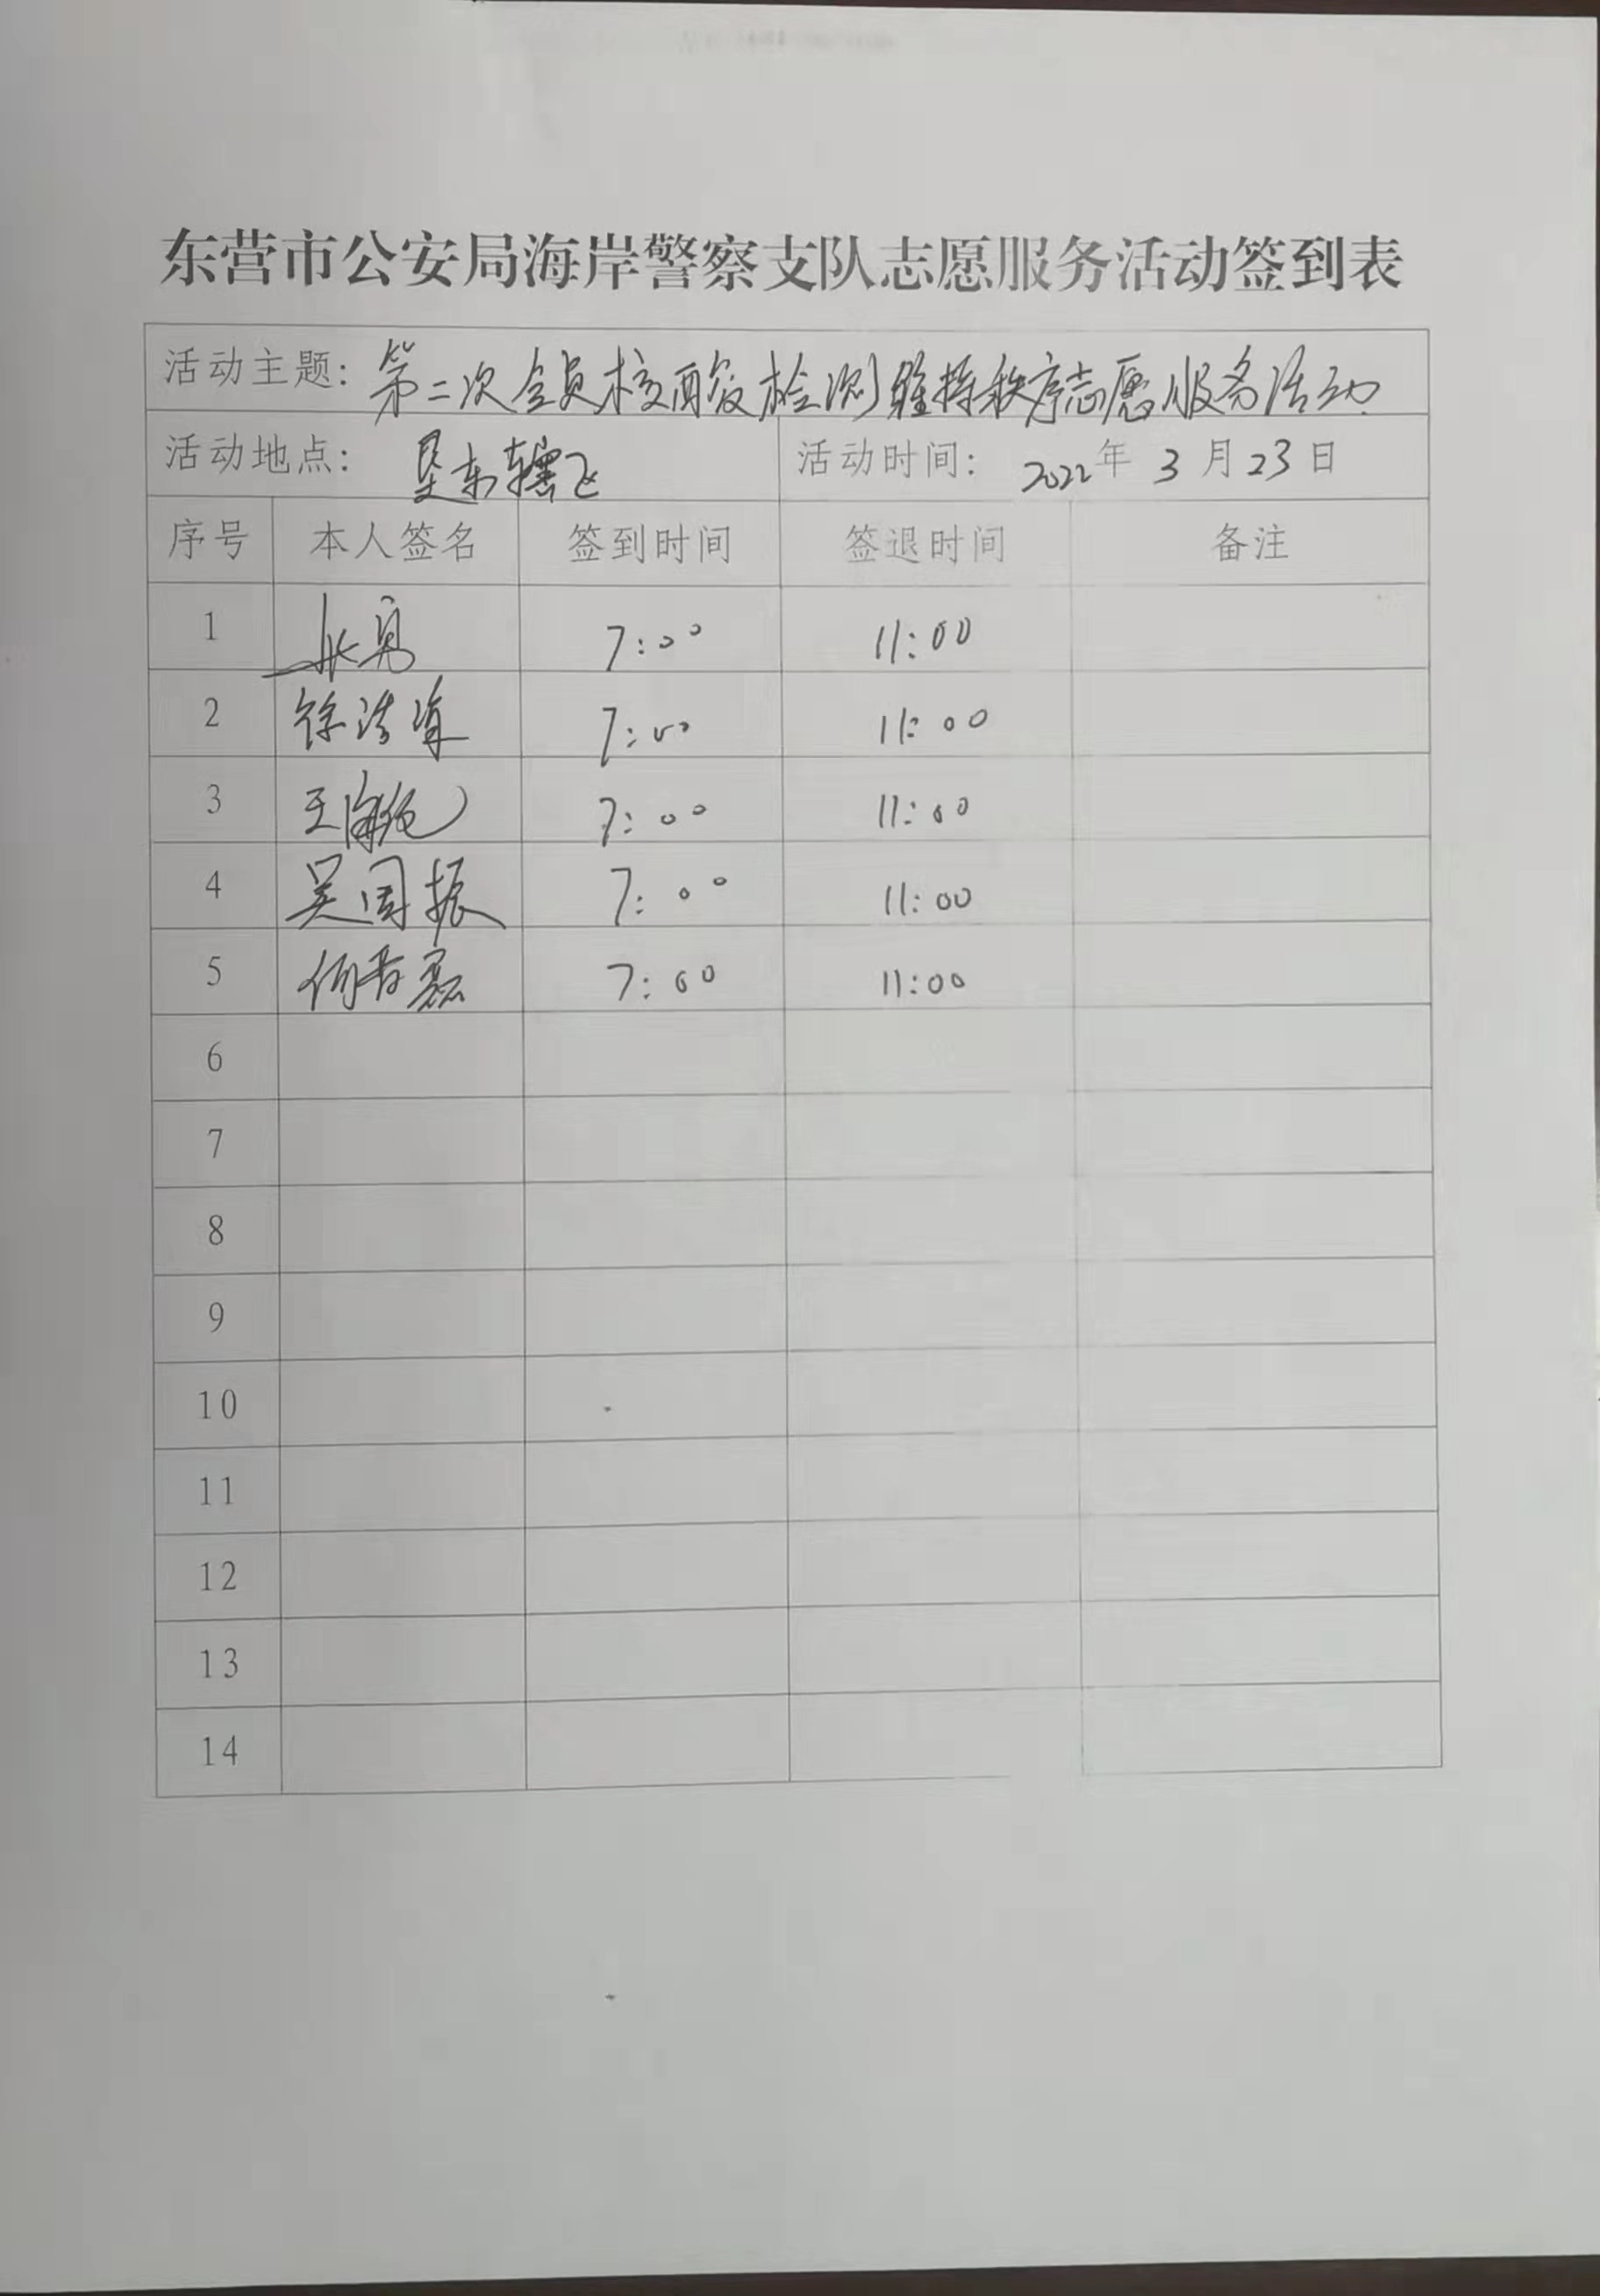 东营市公安局海岸警察支队志愿服务活动签到表
活动主题：第二次全员核酸检测维持秩序志愿服务活动
活动地点：垦东辖区 活动时间：2022年3月23日
序号 本人签名 签到时间 签退时间 备注
1 7:00 11:00
2 徐浩 7:00 11:00
3 王海 7:00 11:00
4 吴国振 7:00 11:00
5 7:00 11:00
6
7
8
9
10
11
12
13
14